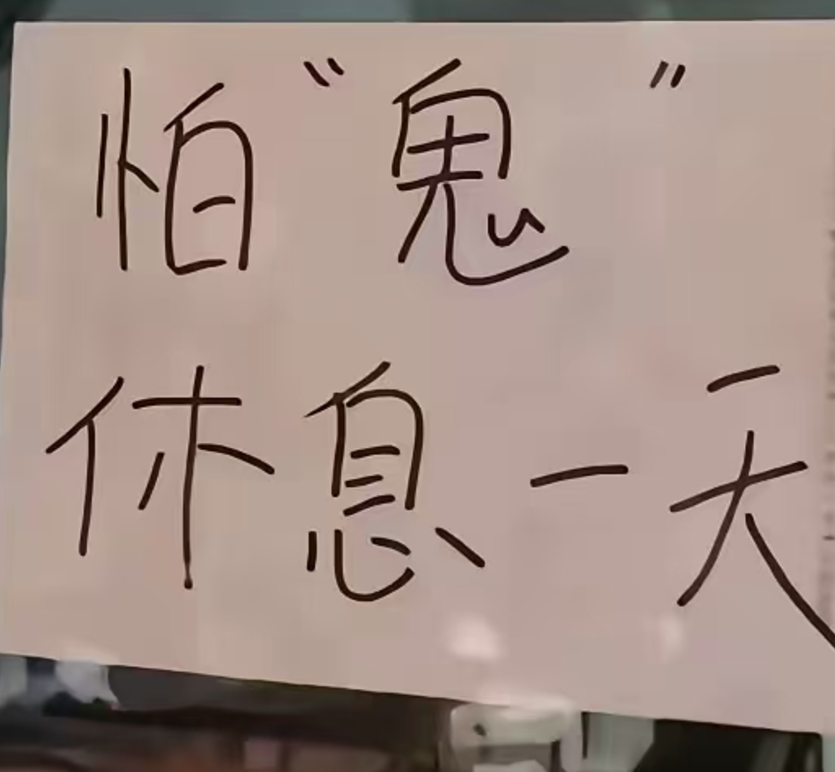 怕“鬼 ”
休息一天